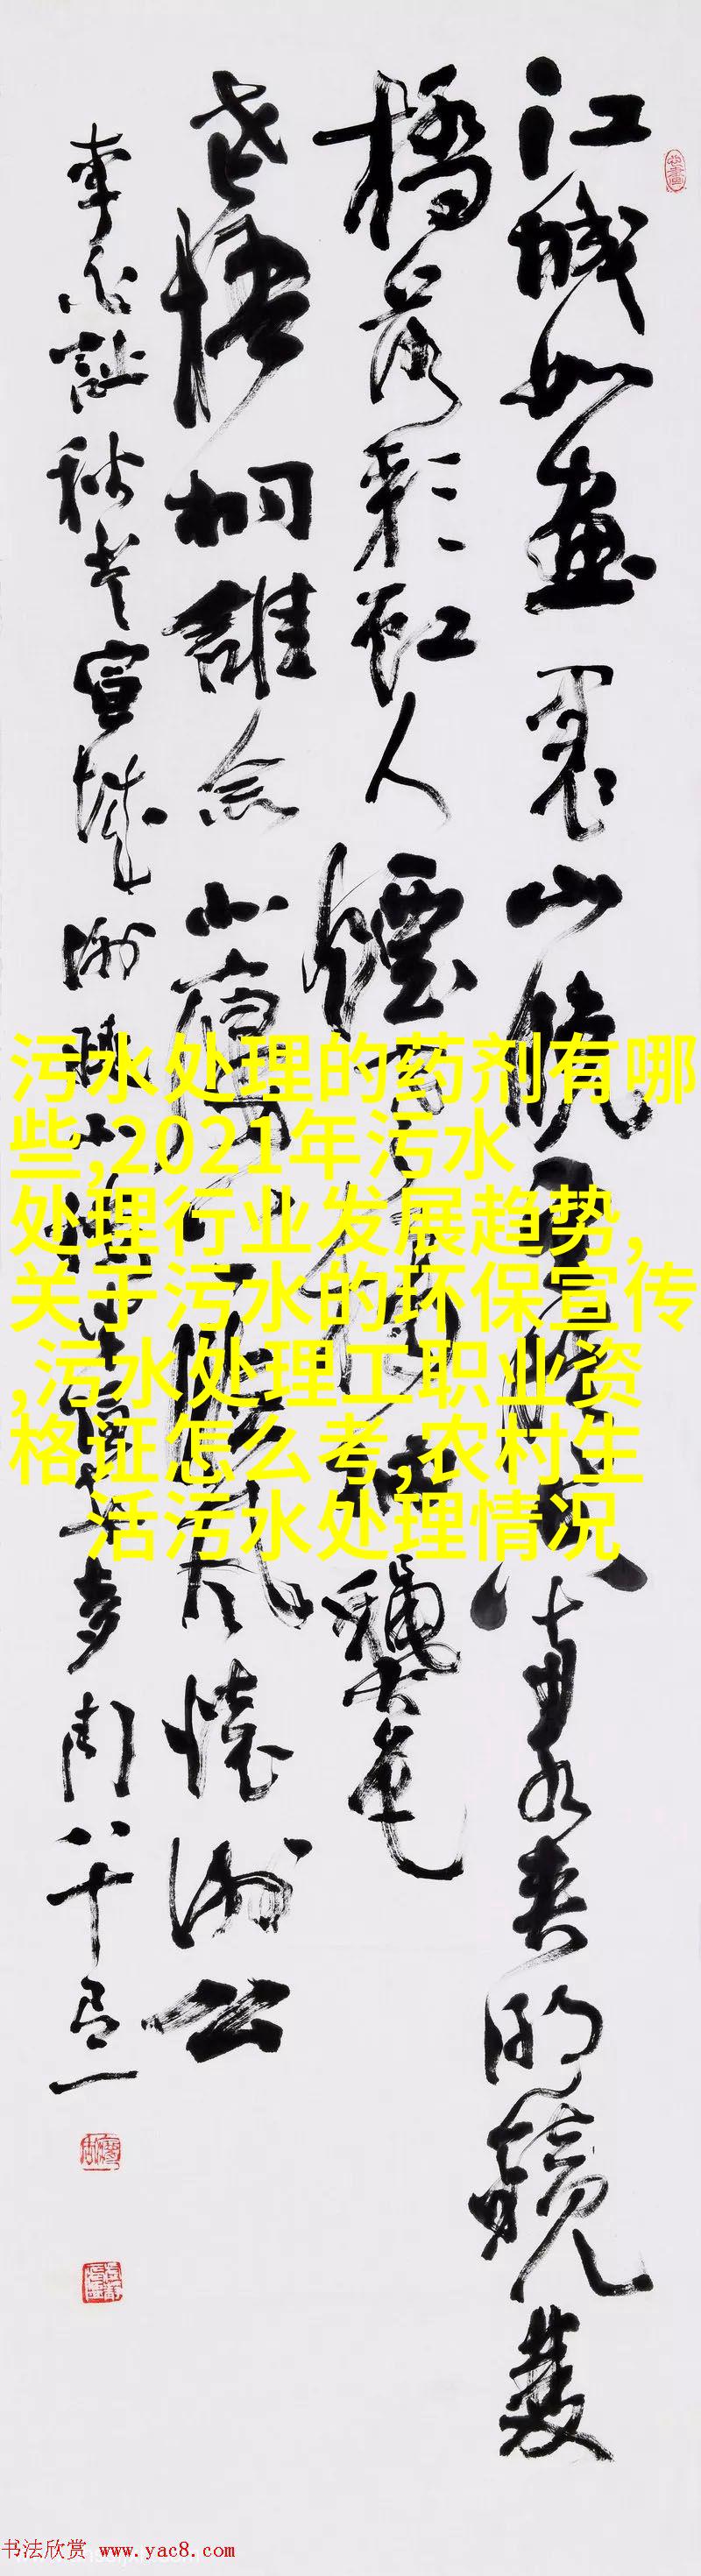 江城如畫裏山曉望晴空兩水夾明鏡雙
橋落彩虹人煙寒橘柚秋色
老梧桐誰念北樓上臨風懷謝公
李白詩秋登宣城謝朓北樓
污水处理的药剂有哪
些,2021年污水
处理行业发展趋势,
关于污水的环保宣传
,污水处理工职业资
格证怎么考,农村生
活污水处理情况
书法欣赏 www.yac8.com